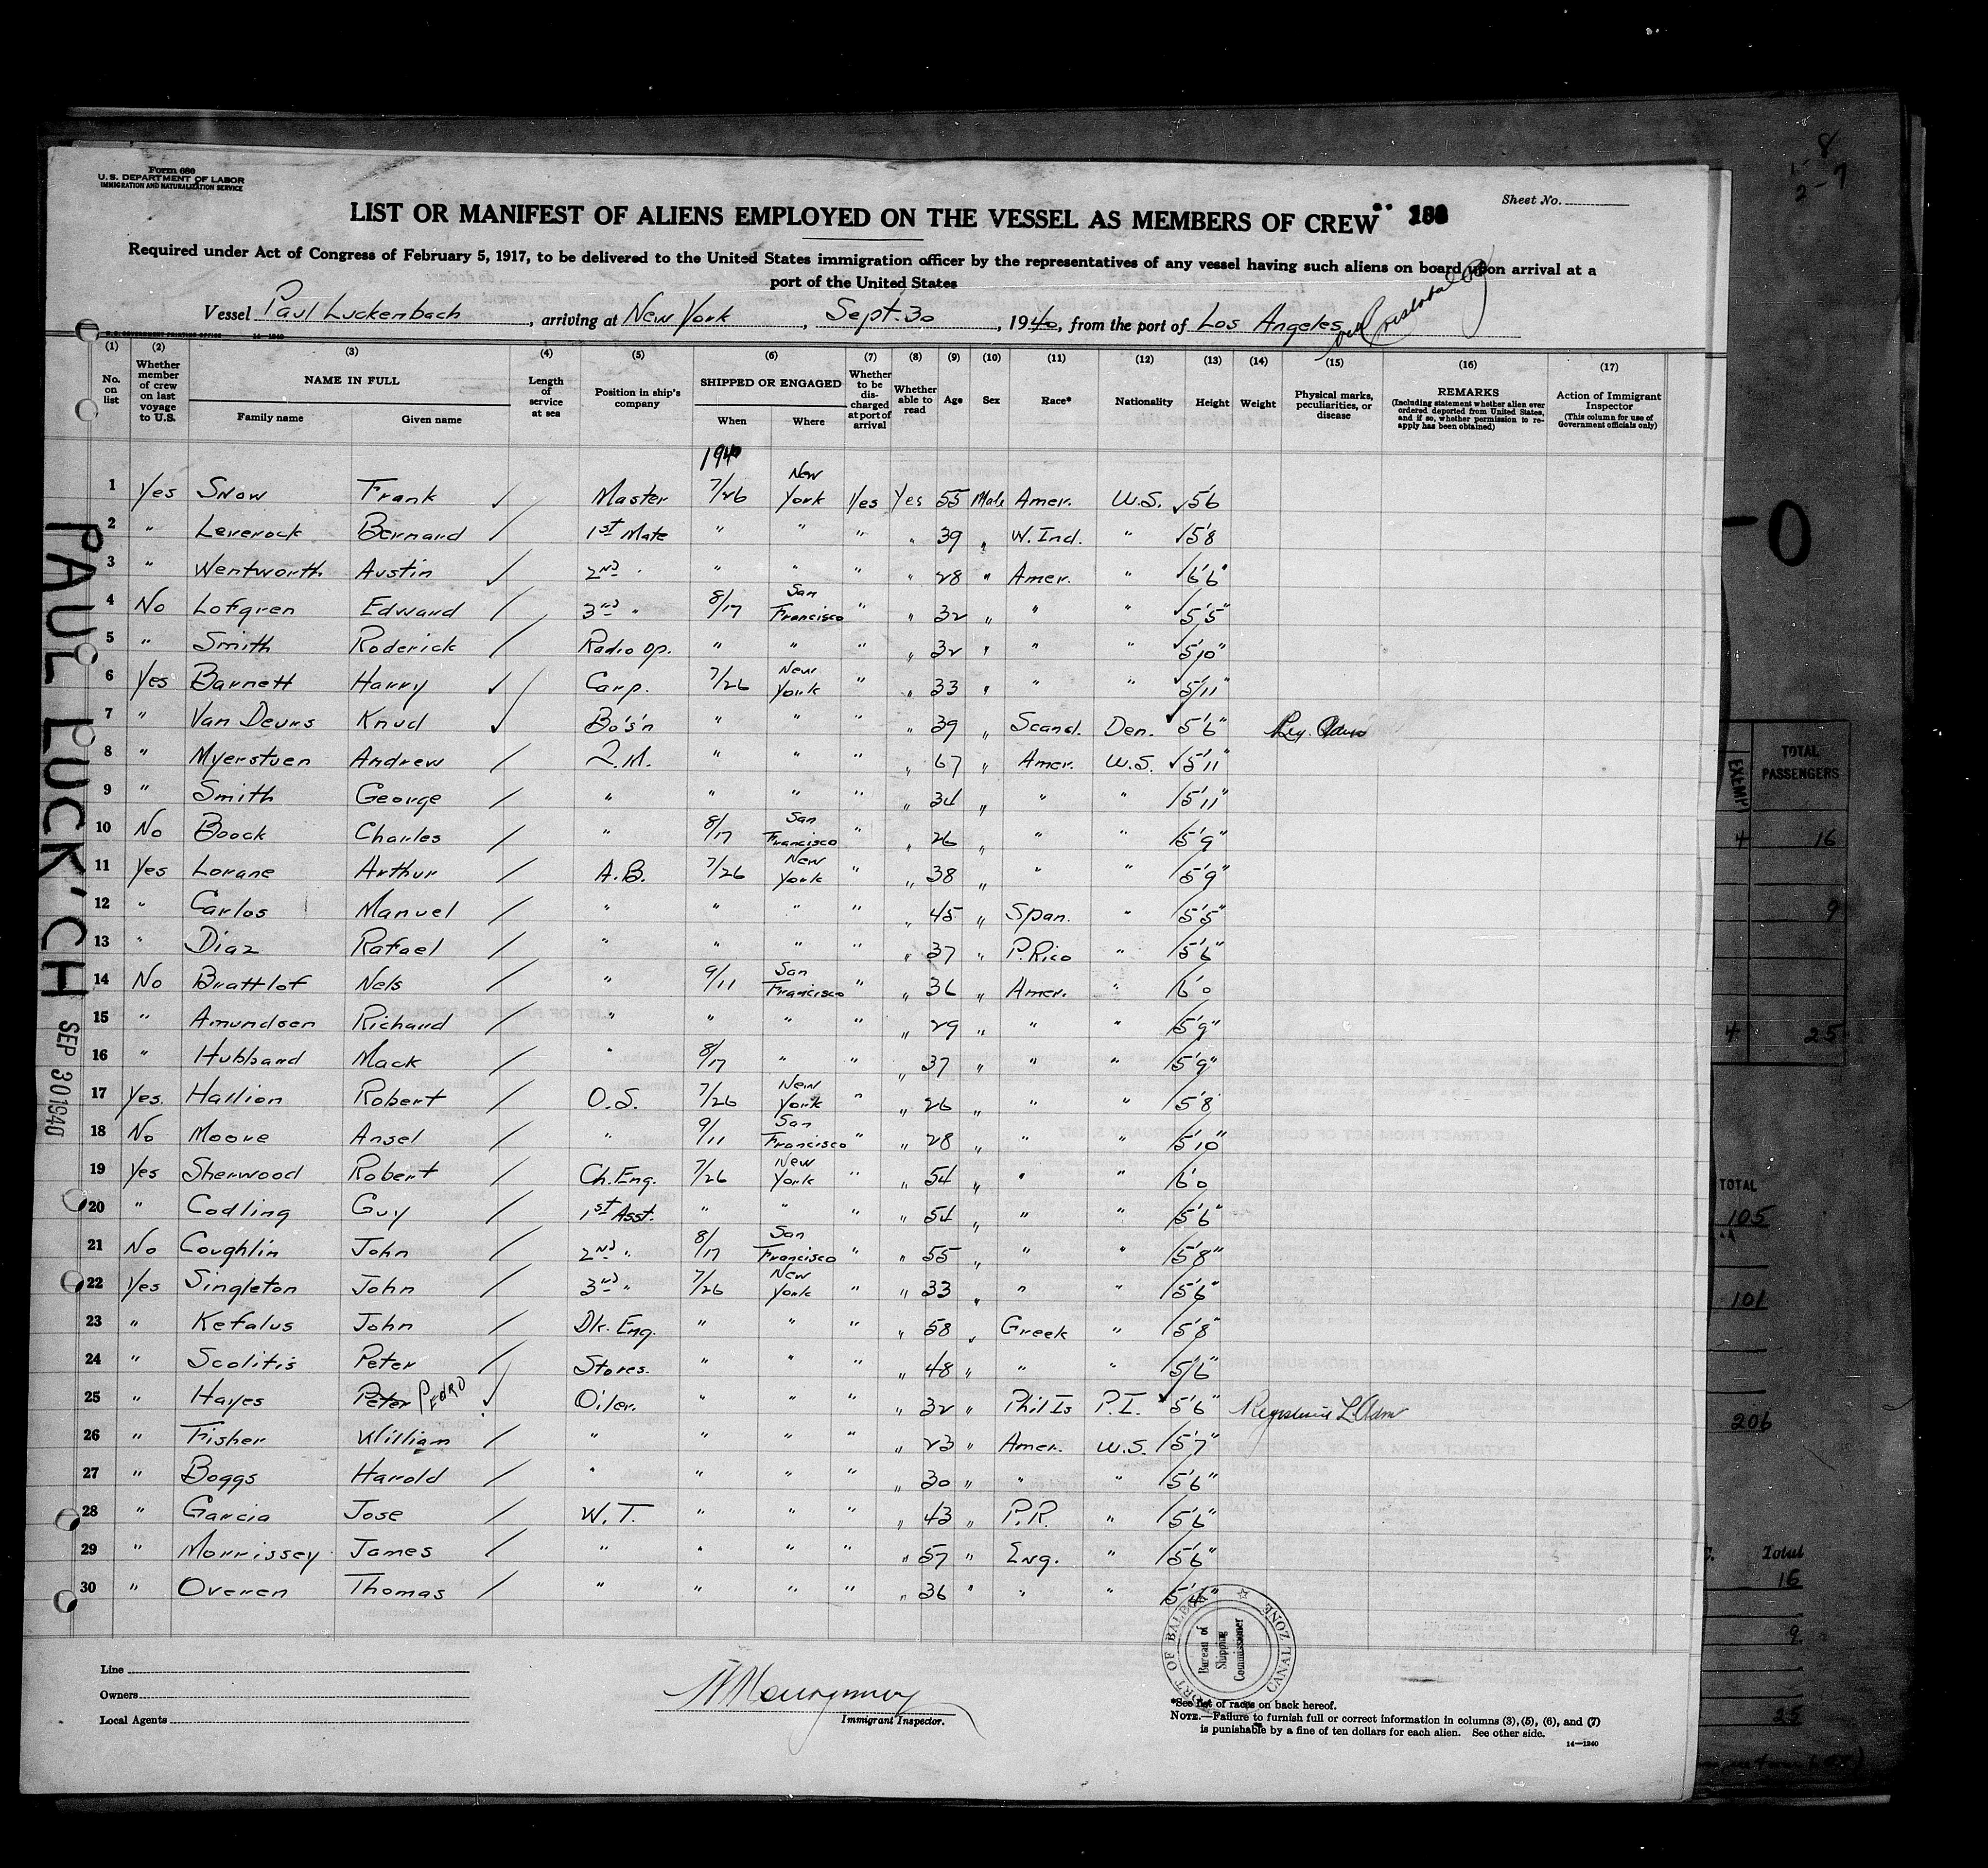 Form 680
U. S. DEPARTMENT OF LABOR
IMMIGRATION AND NATURALIZATION SERVICE
Sheet No.
LIST OR MANIFEST OF ALIENS EMPLOYED ON THE VESSEL AS MEMBERS OF CREW
Required under Act of Congress of February 5, 1917, to be delivered to the United States immigration officer by the representatives of any vessel having such aliens on board upon arrival at a
port of the United States
Vessel Paul Luckenbach, arriving at New York, Sept. 30, 1940, from the port of Los Angeles
U.S. GOVERNMENT PRINTING OFFICE 14—1240
(1) (2) (3) (4) (5) (6) (7) (8) (9) (10) (11) (12) (13) (14) (15) (16) (17)
No. on list
Whether member of crew on last voyage to U.S.
NAME IN FULL
Family name Given name
Length of service at sea
Position in ship's company
SHIPPED OR ENGAGED
When Where
Whether to be discharged at port of arrival
Whether able to read
Age
Sex
Race*
Nationality
Height
Weight
Physical marks, peculiarities, or disease
REMARKS
(Including statement whether alien ever ordered deported from United States, and if so, whether permission to reapply has been obtained)
Action of Immigrant Inspector
(This column for use of Government officials only)
1940
1 Yes Snow Frank Master 7/26 New York Yes Yes 55 Male Amer. U.S. 5'6
2 " Leverock Bernard 1st Mate " " " " 39 " W. Ind. " 5'8
3 " Wentworth Austin 2nd " " " " " 28 " Amer. " 6'6"
4 No Lofgren Edward 3rd " 8/17 San Francisco " " 32 " " " 5'5"
5 " Smith Roderick Radio op. " " " " 32 " " " 5'10"
6 Yes Barnett Harry Carp. 7/26 New York " " 33 " " " 5'11"
7 " Van Deurs Knud Bo's'n " " " " 39 " Scand. Den. 5'6"
8 " Myerstuen Andrew Q.M. " " " " 67 " Amer. U.S. 5'11"
9 " Smith George " " " " " 34 " " " 5'11"
10 No Boock Charles " 8/17 San Francisco " " 26 " " " 5'9"
11 Yes Lorane Arthur A.B. 7/26 New York " " 38 " " " 5'9"
12 " Carlos Manuel " " " " " 45 " Span. " 5'5"
13 " Diaz Rafael " " " " " 37 " P. Rico " 5'6"
14 No Brattlof Nels " 9/11 San Francisco " " 36 " Amer. " 6'0
15 " Amundsen Richard " " " " " 29 " " " 5'9"
16 " Hubbard Mack " 8/17 " " " 37 " " " 5'9"
17 Yes Hallion Robert O.S. 7/26 New York " " 26 " " " 5'8
18 No Moore Ansel " 9/11 San Francisco " " 28 " " " 5'10"
19 Yes Sherwood Robert Ch. Eng. 7/26 New York " " 54 " " " 6'0
20 " Codling Guy 1st Asst. " " " " 54 " " " 5'6"
21 No Coughlin John 2nd " 8/17 San Francisco " " 55 " " " 5'8"
22 Yes Singleton John 3rd " 7/26 New York " " 33 " " " 5'6"
23 " Kefalus John Dk. Eng. " " " " 58 " Greek " 5'8"
24 " Scolitis Peter Stores. " " " " 48 " " " 5'6"
25 " Hayes Peter PEDRO Oiler. " " " " 32 " Phil Is P.I. 5'6"
26 " Fisher William " " " " " 23 " Amer. U.S. 5'7"
27 " Boggs Harold " " " " " 30 " " " 5'6"
28 " Garcia Jose W.T. " " " " 43 " P.R. " 5'6"
29 " Morrissey James " " " " " 57 " Eng. " 5'6"
30 " Overen Thomas " " " " " 36 " " "
PAUL LUCK'CH SEP 30 1940
Line
Owners
Local Agents
Immigrant Inspector.
PORT OF BALBOA CANAL ZONE
Bureau of Shipping Commissioner
*See list of races on back hereof.
NOTE.—Failure to furnish full or correct information in columns (3), (5), (6), and (7)
is punishable by a fine of ten dollars for each alien. See other side.
14—1240
8
2-7
-0
EXEMPT
TOTAL PASSENGERS
4 16
9
4 25
TOTAL
105
101
206
Total
16
9
25